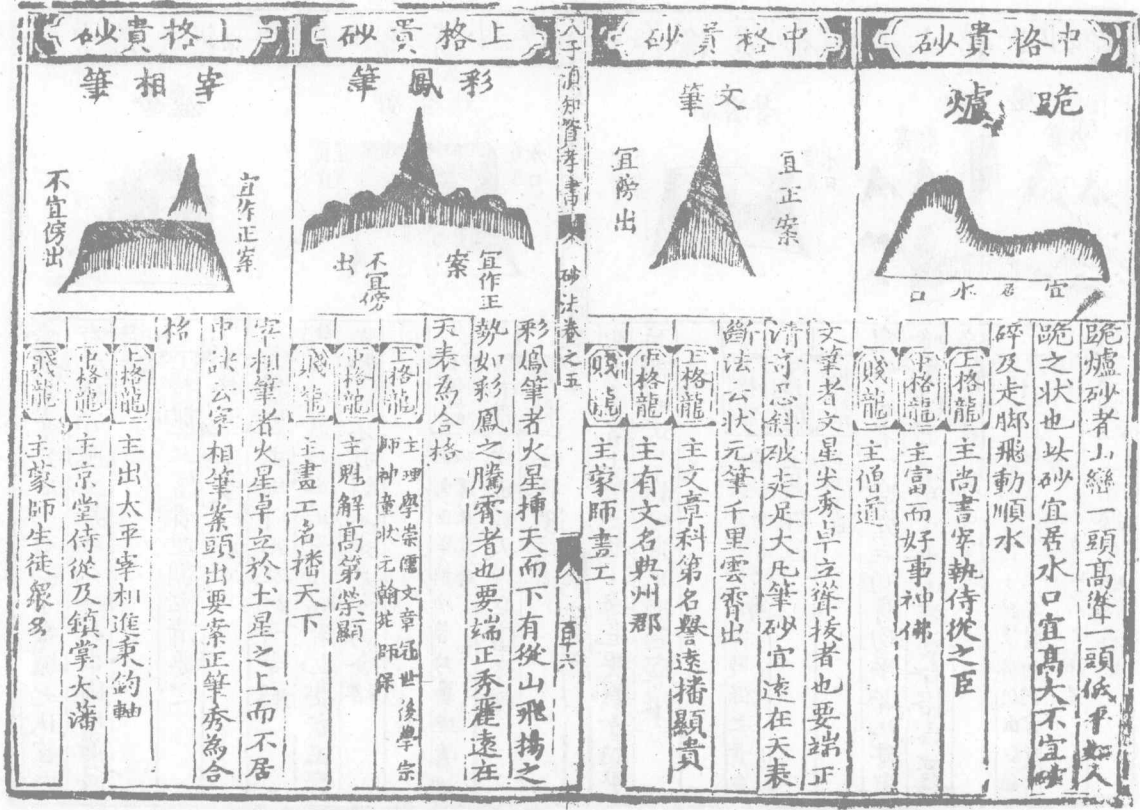 中格貴砂
跪爐
宜居水口
跪爐砂者山巒一頭高聳一頭低平如人
跪之状也此砂宜居水口宜高大不宜破
碎及走脚飛動順水
上格龍 主尚書宰執侍從之臣
中格龍 主富而好事神佛
賤龍 主僧道
中格貴砂
文筆
宜正案
宜傍出
文筆者文星尖秀卓立聳拔者也要端正
清奇忌斜破走足大凡筆砂宜遠在天表
斷法云状元筆千里雲霄出
上格龍 主文章科第名譽遠播顯貴
中格龍 主有文名典州郡
賤龍 主蒙師畫工
人子須知資孝書 砂法卷之五
上格貴砂
彩鳳筆
宜作正案
不宜傍出
彩鳳筆者火星挿天而下有從山飛揚之
勢如彩鳳之騰霄者也要端正秀麗遠在
天表為合格
上格龍 主理學崇儒文章冠世後學宗師神童状元翰苑師保
中格龍 主魁解高第榮顯
賤龍 主畫工名樓天下
上格貴砂
宰相筆
宜作正案
不宜傍出
宰相筆者火星卓立於土星之上而不居
中訣云宰相筆案頭出要案正筆秀為合
格
上格龍 主出太平宰相進秉鈞軸
中格龍 主京堂侍從及鎮掌大藩
賤龍 主蒙師生徒衆多